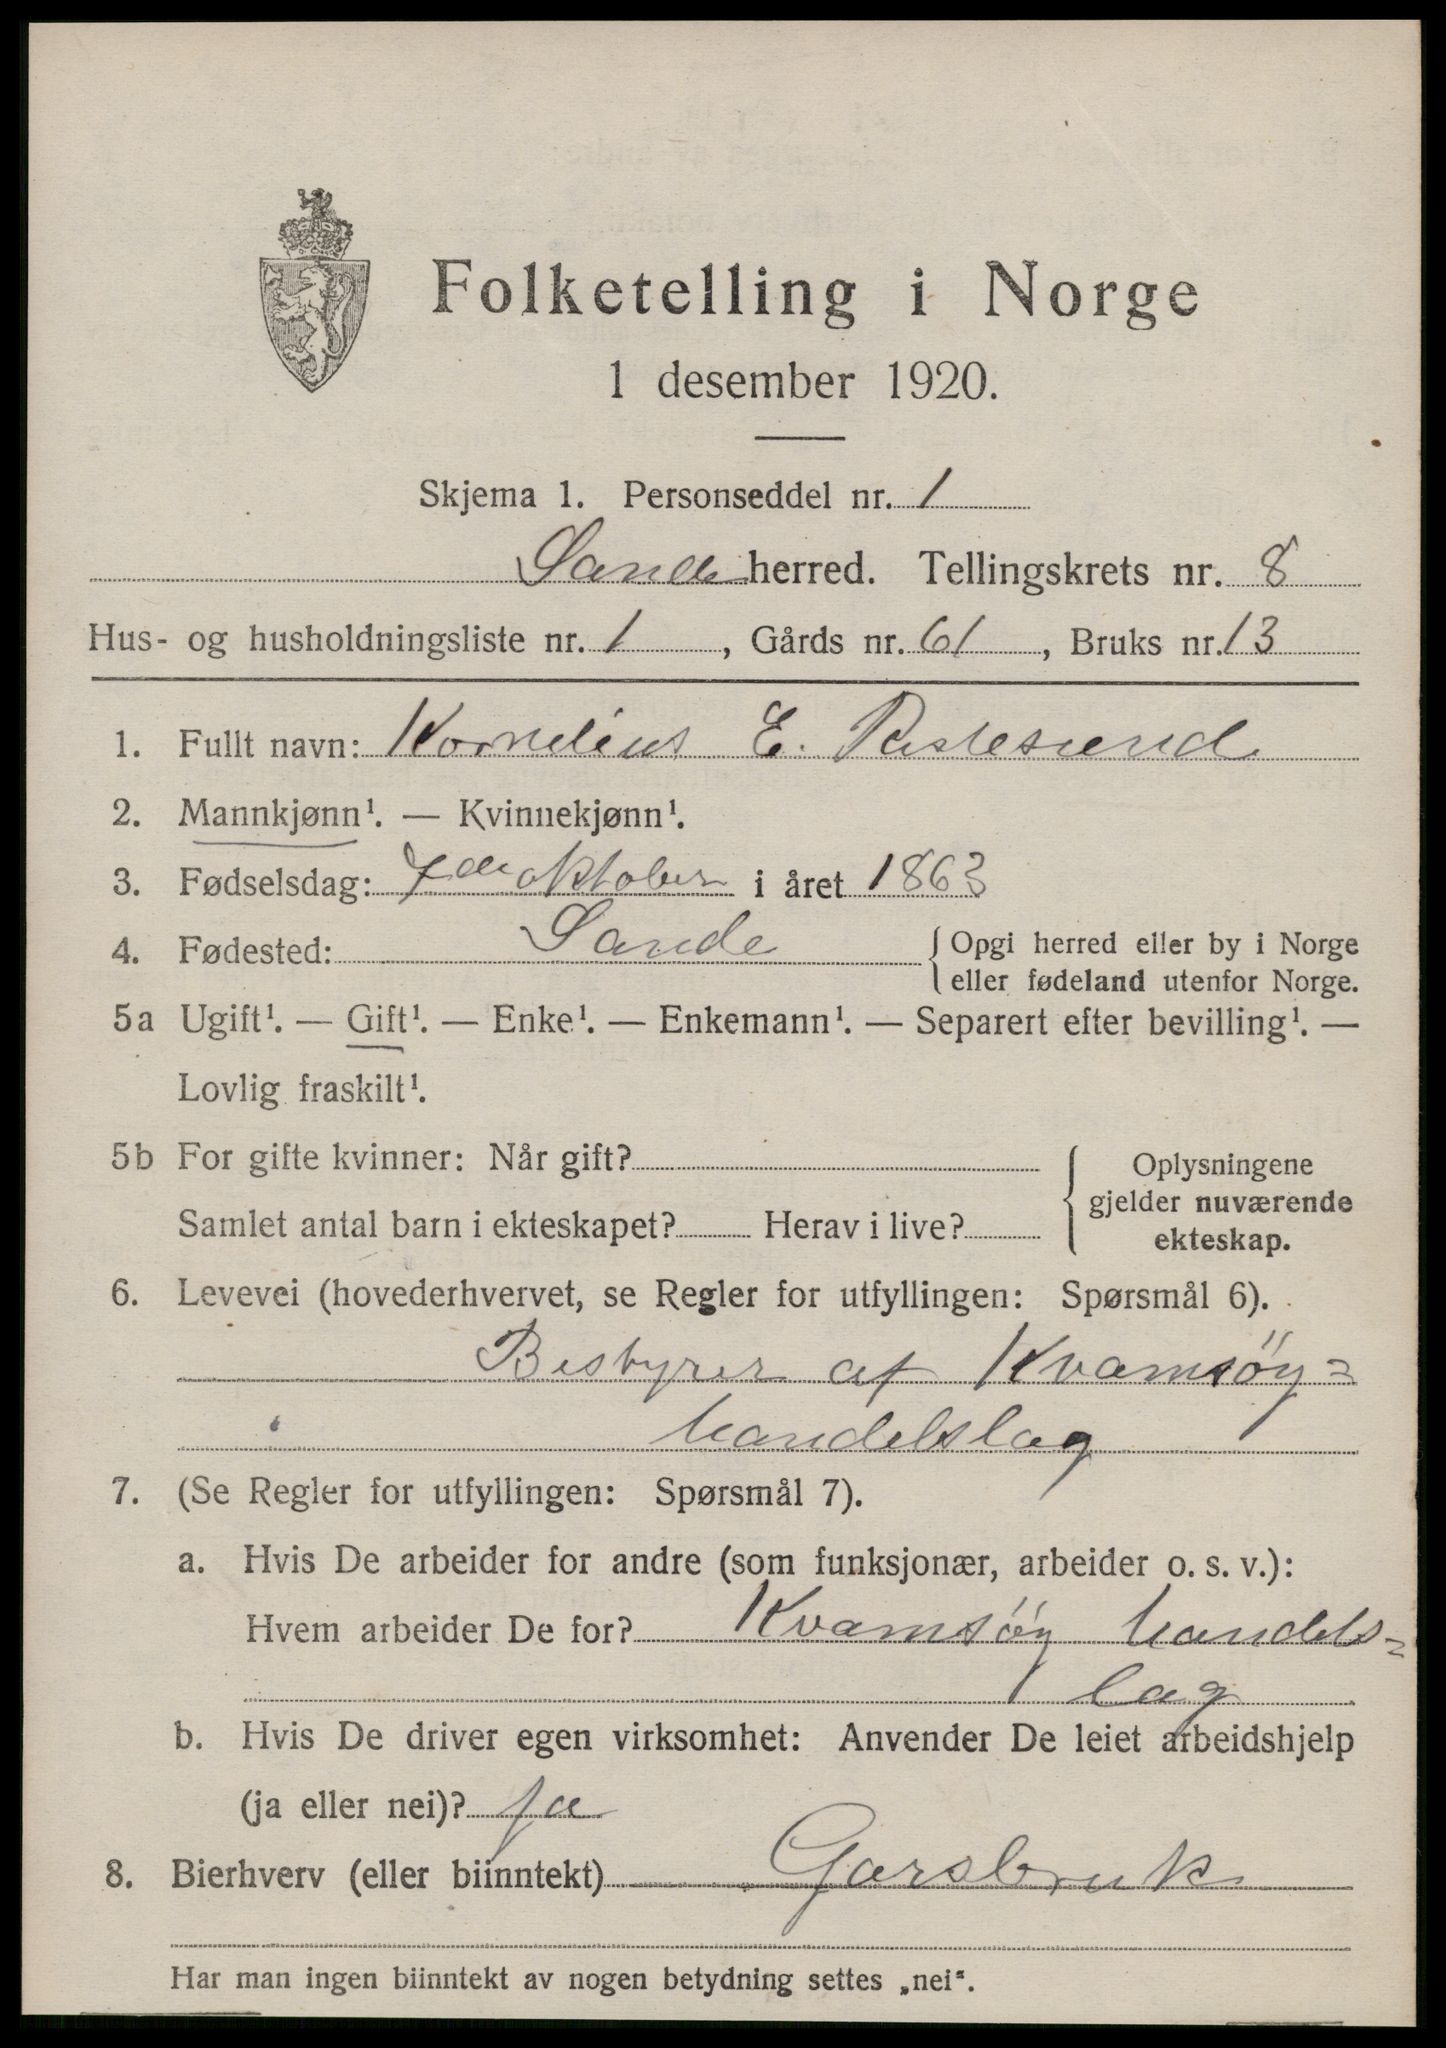 Folketelling i Norge
1 desember 1920.
Skjema 1. Personseddel nr. 1
Sande herred. Tellingskrets nr. 8
Hus- og husholdningsliste nr. 1, Gårds nr. 61, Bruks nr. 13
1. Fullt navn: Kornelius E.
2. Mannkjønn¹. — Kvinnekjønn¹.
3. Fødselsdag: 7de oktober i året 1863
4. Fødested: Sande {Opgi herred eller by i Norge
eller fødeland utenfor Norge.
5a Ugift¹. — Gift¹. — Enke¹. — Enkemann¹. — Separert efter bevilling¹. —
Lovlig fraskilt¹.
5b For gifte kvinner: Når gift?
Samlet antal barn i ekteskapet? Herav i live?
{Oplysningene
gjelder nuværende
ekteskap.
6. Levevei (hovederhvervet, se Regler for utfyllingen: Spørsmål 6).
Bestyrer af Kvamsöy=
handelslag
7. (Se Regler for utfyllingen: Spørsmål 7).
a. Hvis De arbeider for andre (som funksjonær, arbeider o. s. v.):
Hvem arbeider De for? Kvamsöy handels=
lag
b. Hvis De driver egen virksomhet: Anvender De leiet arbeidshjelp
(ja eller nei)? ja
8. Bierhverv (eller biinntekt) Garsbruk
Har man ingen biinntekt av nogen betydning settes „nei“.